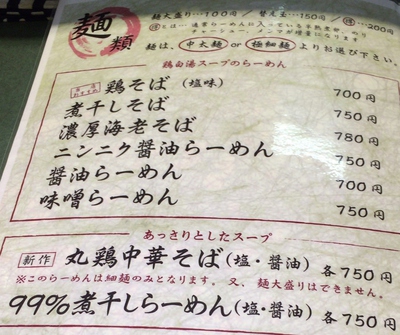 麺類
麺大盛り…100円／替え玉…150円／得…200円
チャーシュー、メンマが増量になります
麺は、中太麺 or 極細麺 よりお選び下さい。
鶏白湯スープのらーめん
当店おすすめ 鶏そば(塩味) 700円
煮干しそば 750円
濃厚海老そば 780円
ニンニク醤油らーめん 750円
醤油らーめん 700円
味噌らーめん 750円
あっさりとしたスープ
新作 丸鶏中華そば(塩・醤油) 各750円
※このらーめんは細麺のみとなります。又、麺大盛りはできません。
99%煮干しらーめん(塩・醤油) 各750円